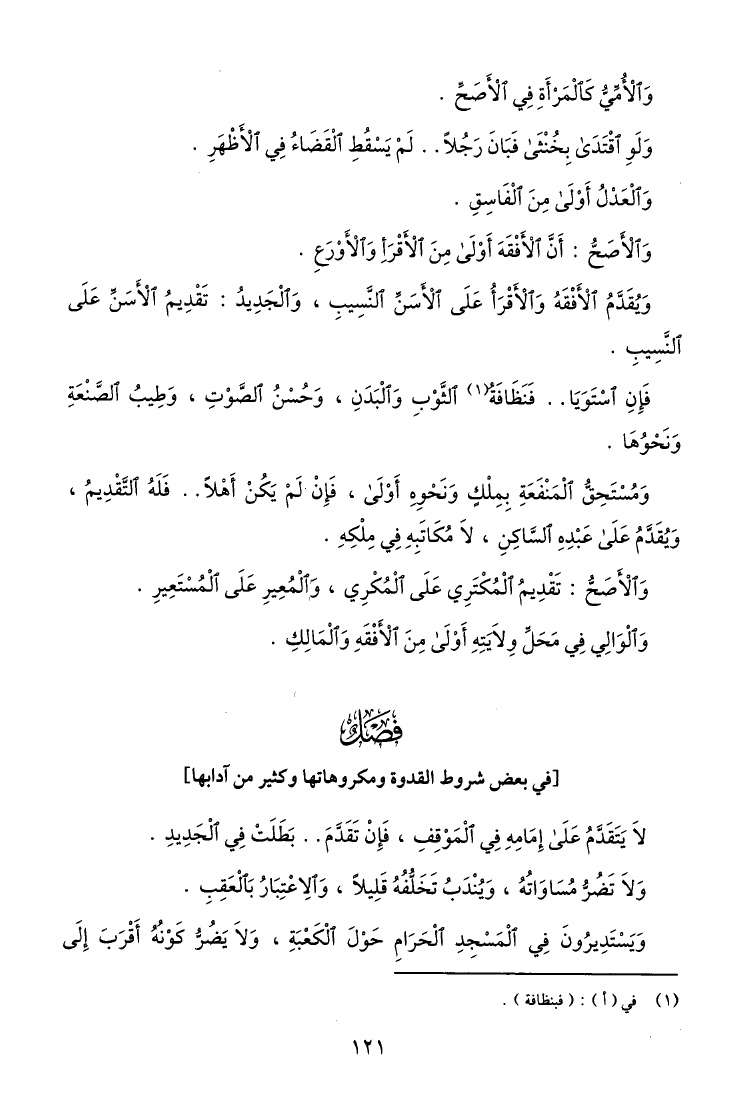 وَٱلْأُمِّيُّ كَٱلْمَرْأَةِ فِي ٱلْأَصَحِّ .
وَلَوِ ٱقْتَدَىٰ بِخُنْثَىٰ فَبَانَ رَجُلاً . . لَمْ يَسْقُطِ ٱلْقَضَاءُ فِي ٱلْأَظْهَرِ .
وَٱلْعَدْلُ أَوْلَىٰ مِنَ ٱلْفَاسِقِ .
وَٱلْأَصَحُّ : أَنَّ ٱلْأَفْقَهَ أَوْلَىٰ مِنَ ٱلْأَقْرَأِ وَٱلْأَوْرَعِ .
وَيُقَدَّمُ ٱلْأَفْقَهُ وَٱلْأَقْرَأُ عَلَى ٱلْأَسَنِّ ٱلنَّسِيبِ ، وَٱلْجَدِيدُ : تَقْدِيمُ ٱلْأَسَنِّ عَلَى
ٱلنَّسِيبِ .
فَإِنِ ٱسْتَوَيَا . . فَنَظَافَةُ(١) ٱلثَّوْبِ وَٱلْبَدَنِ ، وَحُسْنُ ٱلصَّوْتِ ، وَطِيبُ ٱلصَّنْعَةِ
وَنَحْوُهَا .
وَمُسْتَحِقُّ ٱلْمَنْفَعَةِ بِمِلْكٍ وَنَحْوِهِ أَوْلَىٰ ، فَإِنْ لَمْ يَكُنْ أَهْلاً . . فَلَهُ ٱلتَّقْدِيمُ ،
وَيُقَدَّمُ عَلَىٰ عَبْدِهِ ٱلسَّاكِنِ ، لاَ مُكَاتَبِهِ فِي مِلْكِهِ .
وَٱلْأَصَحُّ : تَقْدِيمُ ٱلْمُكْتَرِي عَلَى ٱلْمُكْرِي ، وَٱلْمُعِيرِ عَلَى ٱلْمُسْتَعِيرِ .
وَٱلْوَالِي فِي مَحَلِّ وِلاَيَتِهِ أَوْلَىٰ مِنَ ٱلْأَفْقَهِ وَٱلْمَالِكِ .
فَصْلٌ
[في بعض شروط القدوة ومكروهاتها وكثير من آدابها]
لاَ يَتَقَدَّمُ عَلَىٰ إِمَامِهِ فِي ٱلْمَوْقِفِ ، فَإِنْ تَقَدَّمَ . . بَطَلَتْ فِي ٱلْجَدِيدِ .
وَلاَ تَضُرُّ مُسَاوَاتُهُ ، وَيُنْدَبُ تَخَلُّفُهُ قَلِيلاً ، وَٱلِاعْتِبَارُ بِٱلْعَقِبِ .
وَيَسْتَدِيرُونَ فِي ٱلْمَسْجِدِ ٱلْحَرَامِ حَوْلَ ٱلْكَعْبَةِ ، وَلاَ يَضُرُّ كَوْنُهُ أَقْرَبَ إِلَى
(١) في ( أ ) : ( فبنظافة ) .
١٢١